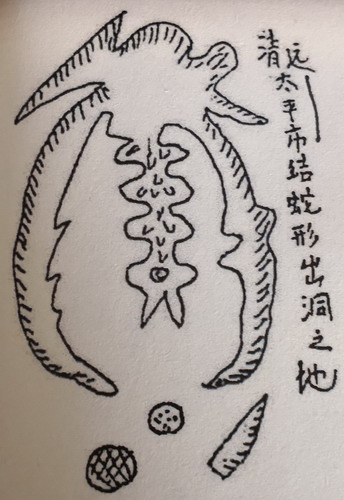 清远太平市结蛇形出洞之地